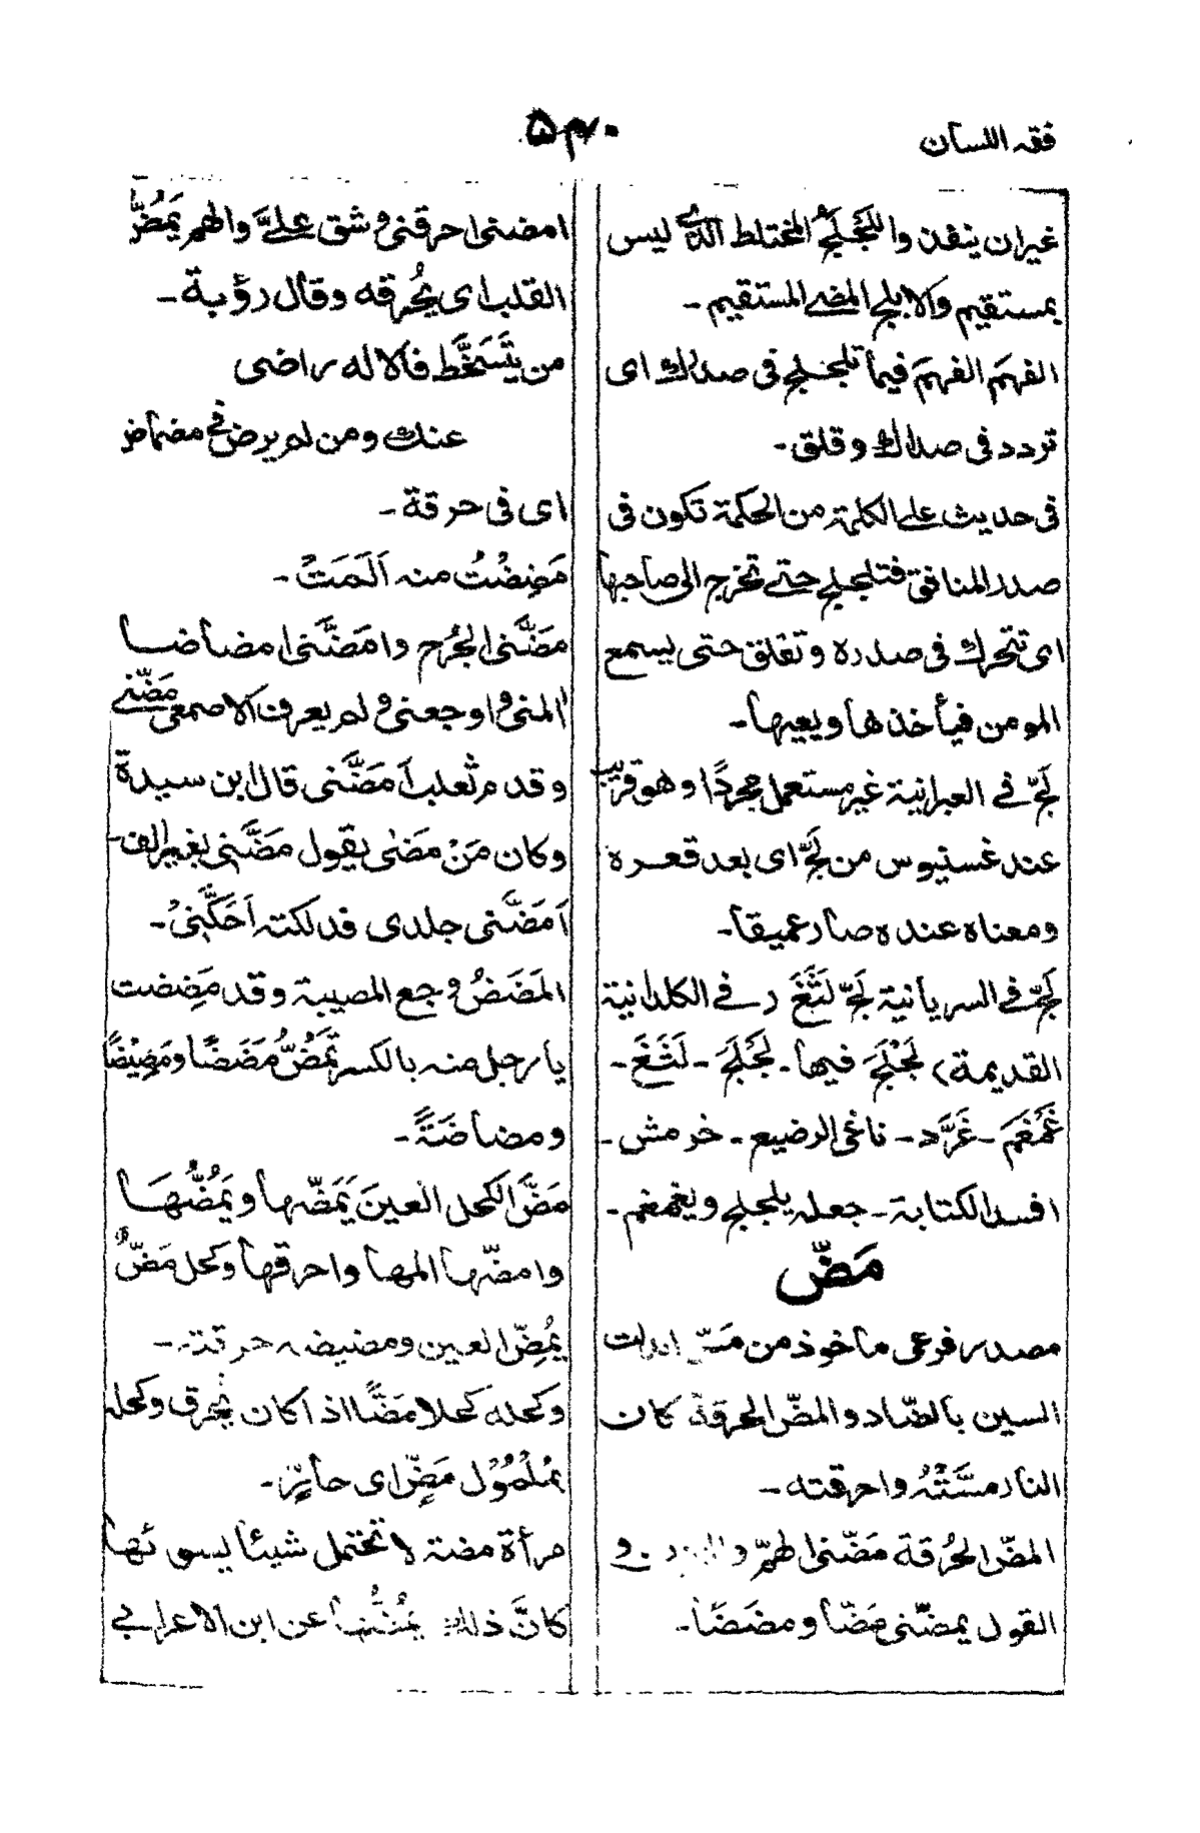 فقه اللسان
۵۴۰
غیران ینفذ واللَجْلَجُ المختلط الذی لیس
بمستقیم والابلج المضی المستقیم ـ
الفهَم الفهَم فیما تلجلج فی صدرك ای
تردد فی صدرك وقلق ـ
فی حدیث علی الکلمة من الحکمة تکون فی
صدر المنافق فتلجلج حتی تخرج الی صاحبها
ای تتحرك فی صدره وتقلق حتی یسمع
المومن فیأخذها ویعیها ـ
لَجّ فی العبرانیة غیر مستعمل مجردًا وهو قریب
عند غسنیوس من لَجّ ای بعد قعره
ومعناه عنده صار عمیقا ـ
لَجّ فی السریانیة لَجّ لَثَّغَ (فی الکلدانیة
القدیمة) لَجْلَجَ فیها ـ لَجْلَجَ ـ لَثَغَ ـ
غَمْغَمَ ـ غَرَّد ـ ناغی الرضیع ـ خرمش ـ
افسد الکتابة ـ جعله یلجلج ویغمغم ـ
مَضّ
مصدر فرعی ماخوذ من مَسّ ابدلت
السین بالضاد والمضّ الحرقة کان
النار مسَّتْهُ واحرقته ـ
المضّ الحُرقة مَضّنی الهمّ و و
القول یمضّنی مَضّا ومضَضًا ـ
امضنی احرقنی وشق علیَّ والهم یَمُضّ
القلب ای یُحرقه وقال رؤبة ـ
من یتَسَخَّط فالاله راضی
عنك ومن لم یرض فی مضماض
ای فی حرقة ـ
مَضِضْتُ منه اَلَمْتُ ـ
مَضَّنی الجُرح وامَضَّنی امضاضا
المنی واوجعنی ولم یعرف الاصمعی مَضّنی
وقدم ثعلب اَمَضَّنی قال ابن سیدة
وکان مَنْ مَضٰی یقول مَضَّنی بغیر الف ـ
اَمَضَّنی جلدی فدلکته اَحَکَّنِیْ ـ
المَضَضُ وجع المصیبة وقد مَضِضت
یا رجل منه بالکسر تَمَضُّ مَضَضًا ومَضِیْضًا
ومضاضَةً ـ
مَضَّ الکحل العینَ یَمَضّها ویَمُضُّهَا
وامضّها المها واحرقها وکحل مَضّ
یُمِضّ العین ومضیضه حرقته ـ
وکحله کحلا مَضًّا اذا کان یحرق وکحله
بمُلْمُوْل مَضٍّ ای حارٍّ ـ
مرأة مضة لا تحتمل شیئا یسوئها
کانَّ ذلك یمُضُّها عن ابن الاعرابی